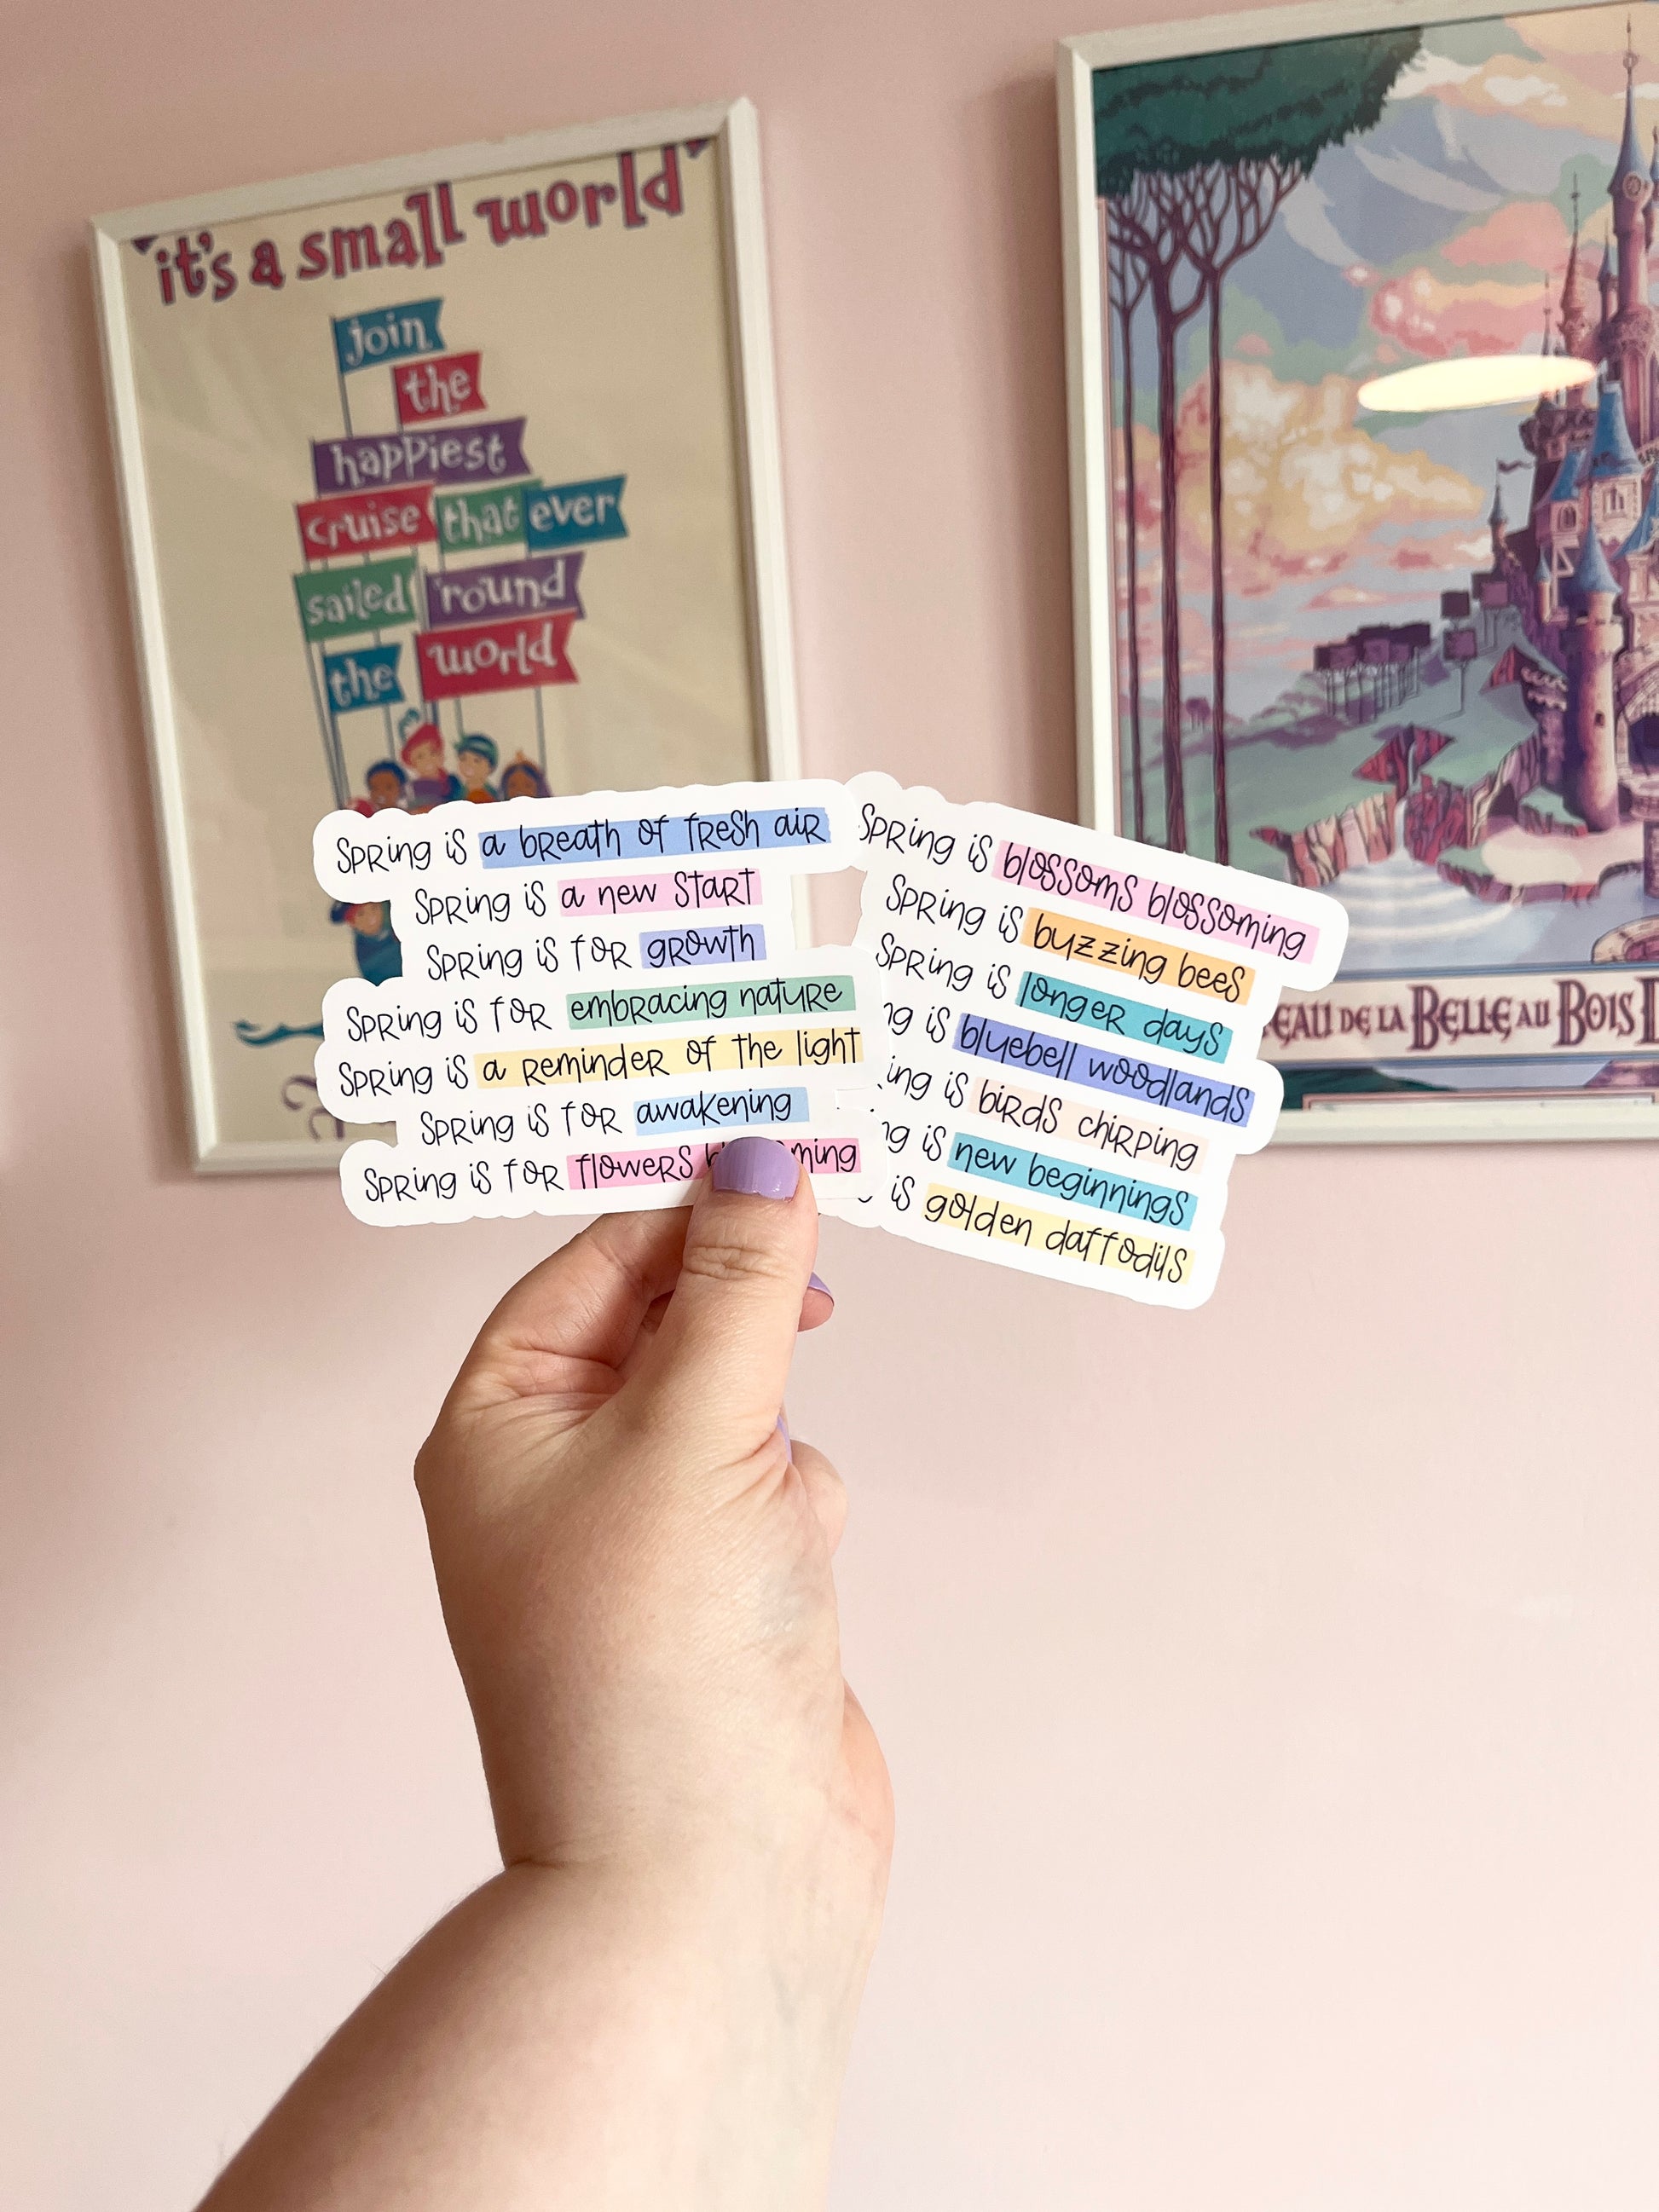 it's a small world
join
the
happiest
cruise that ever
sailed 'round
the world
EAU DE LA BELLE AU BOIS D
Spring is a breath of fresh air
Spring is a new start
Spring is for growth
Spring is for embracing nature
Spring is a reminder of the light
Spring is for awakening
Spring is for flowers
Spring is blossoms blossoming
Spring is buzzing bees
Spring is longer days
ng is bluebell woodlands
ing is birds chirping
ng is new beginnings
is golden daffodils